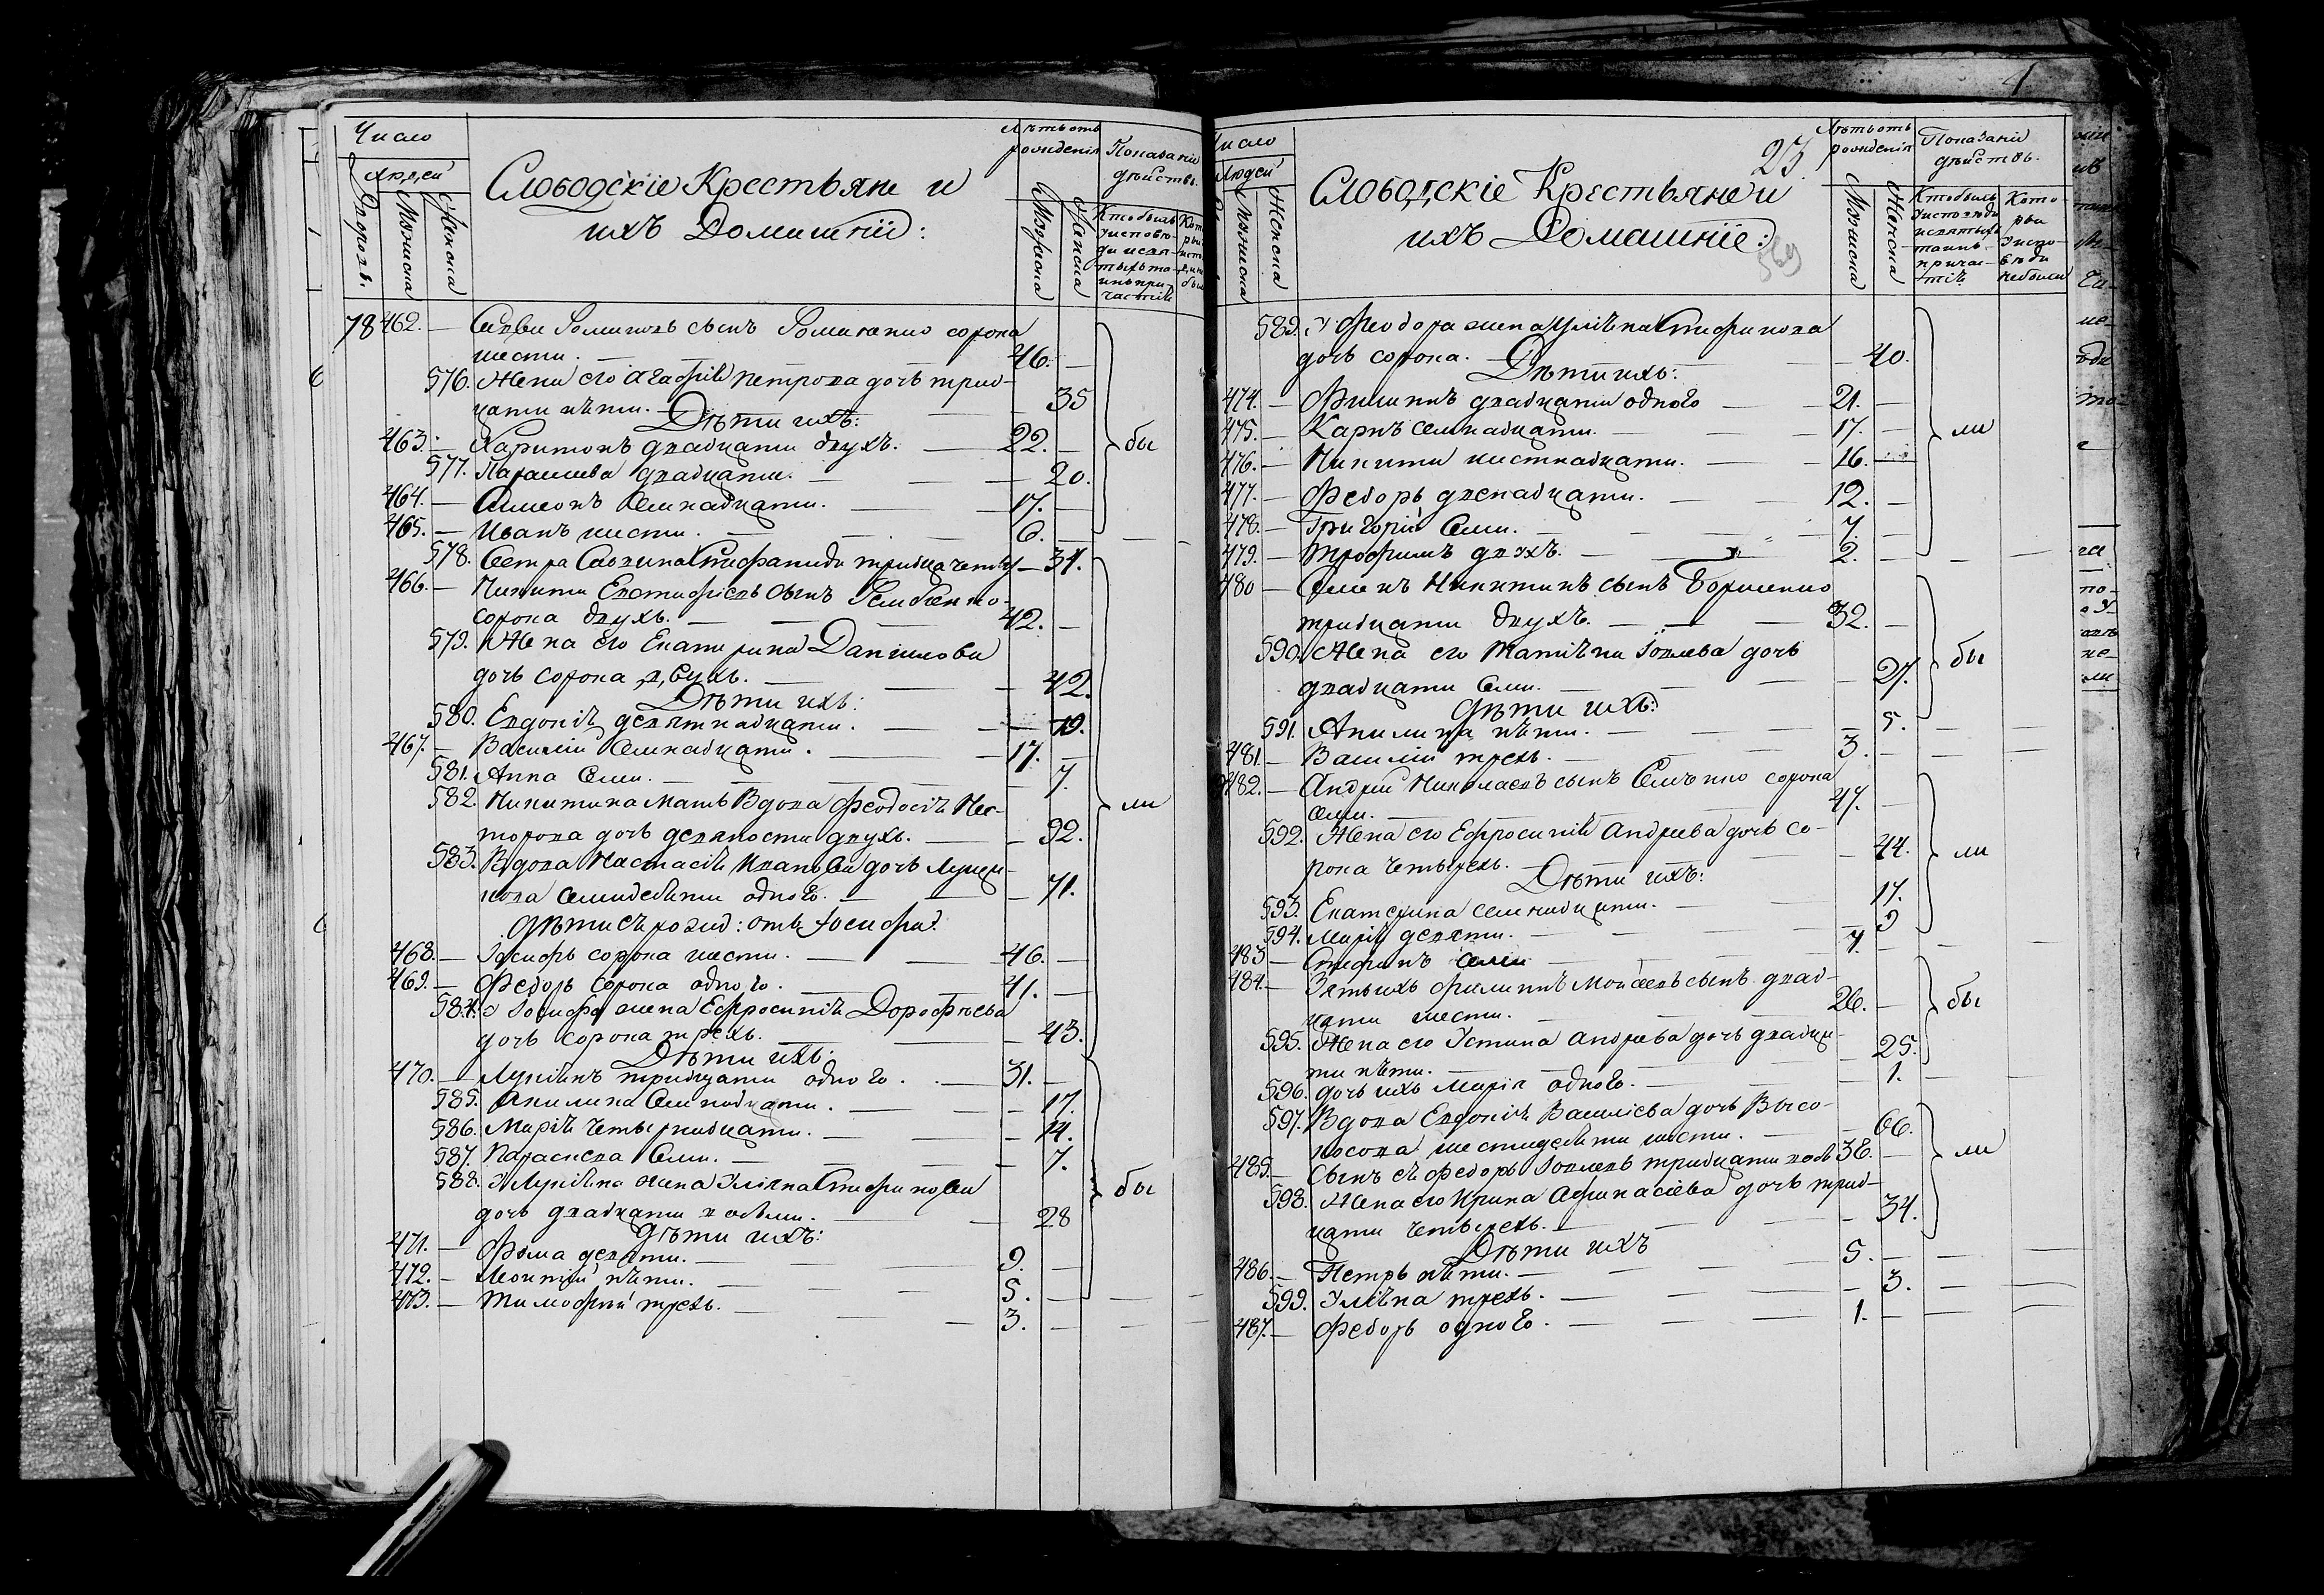 Число
Людей
Дворовъ.
Мужеска
Женска
Слободскіе Крестьяне и
ихъ Домашніи:
Лѣтъ отъ
рожденія
Мужеска
Женска
Показаніи
дѣйствъ.
Кто былъ
у исповѣ-
ди и свя-
тыхъ та-
инъ при-
частія
78 462. — Савва Романовъ сынъ сорока
шести. — 46. —
576. Жена его Агафія Петрова дочь трид-
цати пяти. — 35
Дѣти ихъ:
463. — Харитонъ двадцати двухъ. — 22. —
577. Параскева двадцати. — 20.
464. — Симеонъ семнадцати. — 17. —
465. — Иванъ шести. — 6. —
бы
578. Сестра Саввина Стефанида — 34.
466. — Никита сынъ
сорока двухъ. — 42. —
579. Жена его Екатерина Данилова
дочь сорока двухъ. — 42.
Дѣти ихъ:
580. Евдокія девятнадцати. — 19.
467. — Василій семнадцати. — 17. —
581. Анна семи. — 7.
582. Никитина мать вдова Феодосія Нес-
торова дочь девяноста двухъ. — 92.
583. Вдова Настасія Иванова дочь
семидесяти одного. — 71.
ли
Дѣти ея рожд: отъ Іосифа:
468. — Іосифъ сорока шести. — 46. —
469. — Федоръ сорока одного. — 41. —
584. У Іосифа жена Ефросинія Дорофѣева
дочь сорока трехъ. — 43.
Дѣти ихъ:
470. — Лукіянъ тридцати одного. — 31. —
585. Акилина семнадцати. — 17.
586. Марія четырнадцати. — 14.
587. Параскева семи. — 7.
588. У Лукіяна жена Уліяна Стефанова
дочь двадцати восьми. — 28
Дѣти ихъ:
471. — Фома девяти. — 9. —
472. — пяти. — 5. —
473. — Тимофій трехъ. — 3. —
бы
Число
Людей
Мужеска
Женска
Слободскіе Крестьяне и
ихъ Домашніе:
23.
569
Лѣтъ отъ
рожденія
Мужеска
Женска
Показаніи
дѣйствъ.
Кто былъ
у исповѣди
и святыхъ
таинъ
причас-
тія
Кото-
рыи
у испо-
вѣди
не были
589. У Феодора жена Уліяна Стефанова
дочь сорока. — 40.
Дѣти ихъ:
474. — Филиппъ двадцати одного — 21. —
475. — Карпъ семнадцати. — 17. —
476. — Никита шестнадцати. — 16. —
477. — Федоръ двенадцати. — 12. —
478. — Григорій семи. — 7. —
479. — Трофимъ двухъ. — 2. —
ли
480 — Семенъ Никитинъ сынъ
тридцати двухъ. — 32. —
590. Жена его Татіяна Іовлева дочь
двадцати семи. — 27.
Дѣти ихъ:
591. Акилина пяти. — 5.
481. — Василій трехъ. — 3. —
бы
482. — Андрей Николаевъ сынъ сорока
семи. — 47. —
592. Жена его Ефросинія Андреева дочь со-
рока четырехъ. — 44.
Дѣти ихъ:
593. Екатерина семнадцати. — 17.
594. Марія девяти. — 9
483 — Стефанъ семи — 7. —
ли
484. — Зять ихъ Филиппъ Моисеевъ сынъ двад-
цати шести. — 26. —
595. Жена его Устина Андреева дочь двадца-
ти пяти. — 25.
596. Дочь ихъ Марія одного. — 1.
бы
597. Вдова Евдокія Василіева дочь Высо-
косова шестидесяти шести. — 66.
485. — Сынъ ея Федоръ Іовлевъ тридцати — 38. —
598. Жена его Ирина Афанасіева дочь трид-
цати четырехъ. — 34.
ли
Дѣти ихъ
486. — Петръ пяти. — 5. —
599. Уліяна трехъ. — 3.
487. — Федоръ одного. — 1. —